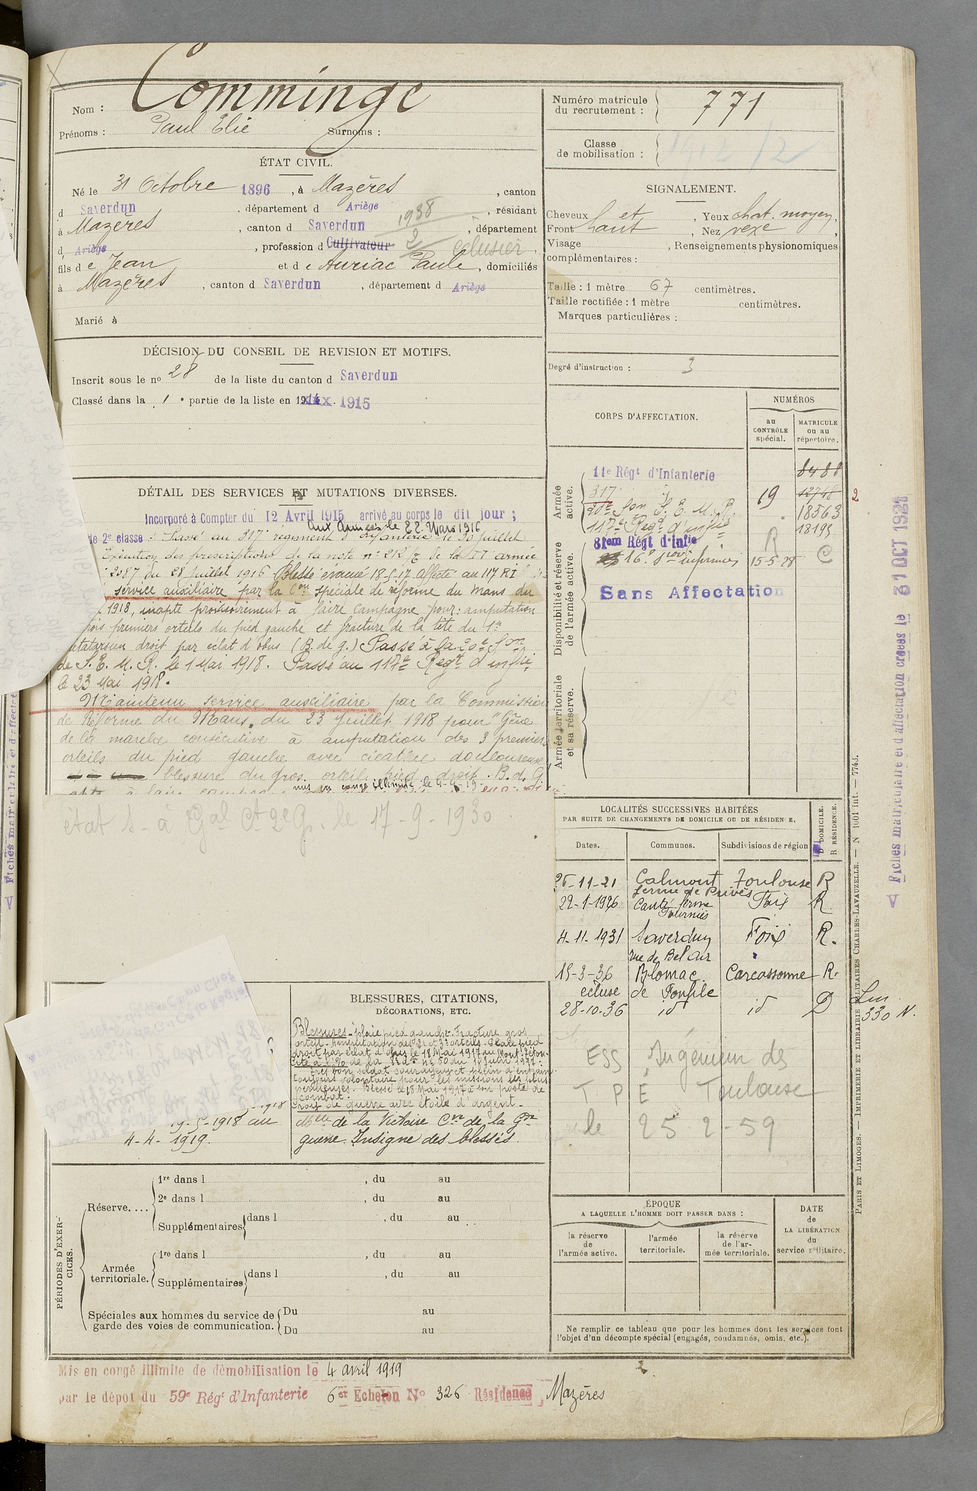 Nom : Comminge
Prénoms : Paul Elie Surnoms :
Numéro matricule du recrutement : 771
Classe de mobilisation :
ÉTAT CIVIL.
Né le 31 Octobre 1896, à Mazères, canton
d Saverdun, département d Ariège, résidant
à Mazères, canton d Saverdun, département
d Ariège, profession d Cultivateur éclusier,
fils de Jean et de Auriac Paule, domiciliés
à Mazères, canton d Saverdun, département d Ariège
Marié à
1938
2
SIGNALEMENT.
Cheveux, Yeux chat. moyen,
Front haut, Nez vexe,
Visage, Renseignements physionomiques
complémentaires :
Taille : 1 mètre 67 centimètres.
Taille rectifiée : 1 mètre centimètres.
Marques particulières :
Degré d'instruction : 3
DÉCISION DU CONSEIL DE REVISION ET MOTIFS.
Inscrit sous le no 28 de la liste du canton d Saverdun
Classé dans la 1e partie de la liste en 1915
CORPS D'AFFECTATION.
NUMÉROS
au CONTRÔLE spécial.
MATRICULE ou au répertoire.
Armée active.
11e Régt d'Infanterie 8488
317 19 12748
20e Son S. E. M. R. 18563
117e Régt d'infie 18195
Disponibilité et réserve de l'armée active.
81em Régt d'Infie R
16e Son infirmiers 15-5-28 C
Sans Affectation
Armée territoriale et sa réserve.
2
DÉTAIL DES SERVICES ET MUTATIONS DIVERSES.
Incorporé à Compter du 12 Avril 1915 arrivé au corps le dit jour ;
Aux Armées le 22 Mars 1916
de 2e classe. Passé au 317e régiment d'infanterie le 30 juillet
Exécution des prescriptions de la note no 212 de la armée
2087 du 28 juillet 1916 Blessé évacué 18.5.17 affecté au 117 RI
service auxiliaire par la Con spéciale de réforme du Mans du
1918, inapte provisoirement à faire campagne pour: amputation
premiers orteils du pied gauche et fracture de la tête du 1er
métatarsien droit par éclat d'obus (B. de g.) Passé à la 20e Son
de S. E. M. R. le 1 Mai 1918. Passé au 117e Régt d'infie
le 23 Mai 1918.
Maintenu service auxiliaire par la Commission
de Réforme du Mans, du 23 juillet 1918 pour "Gêne
de la marche consécutive à amputation des 3 premiers
orteils du pied gauche avec cicatrice douloureuse
blessure du gros orteil pied droit. B. d. G.
état le 17-9-1930
LOCALITÉS SUCCESSIVES HABITÉES
PAR SUITE DE CHANGEMENTS DE DOMICILE OU DE RÉSIDENCE.
Dates. Communes. Subdivisions de région D. DOMICILE. R. RÉSIDENCE.
25-11-21 Calmont ferme de Privés Toulouse R
22-1-1926 Canté ferme Foix R
4-11-1931 Saverdun rue de Bel Air Foix R.
15-3-36 Blomac écluse de Fonfile Carcassonne R.
28-10-36 id id D
330 N.
ESS Ingénieur des
T P E Toulouse
le 25 2-59
BLESSURES, CITATIONS,
DÉCORATIONS, ETC.
Blessures - plaie pied gauche. Fracture gros
orteil. Amputation des 2e et 3e orteils. Plaie pied
droit par éclat d'obus le 18 Mai 1917 au Mont
Cité à l'O/ de la
Très bon soldat courageux et plein d'entrain
toujours volontaire pour les missions les plus
périlleuses. Blessé le 18 Mai 1917 à son poste de
combat.
Croix de guerre avec étoile d'argent.
Mlle de la Victoire Cve de la Gde
guerre. Insigne des blessés.
19-5-1918 au
4-4-1919.
PÉRIODES D'EXERCICES.
Réserve....
1re dans l , du au
2e dans l , du au
Supplémentaires dans l , du au
Armée territoriale.
1re dans l , du au
Supplémentaires dans l , du au
Spéciales aux hommes du service de garde des voies de communication.
Du au
Du au
ÉPOQUE
A LAQUELLE L'HOMME DOIT PASSER DANS :
la réserve de l'armée active.
l'armée territoriale.
la réserve de l'armée territoriale.
DATE de LA LIBÉRATION du service militaire.
Ne remplir ce tableau que pour les hommes dont les services font
l'objet d'un décompte spécial (engagés, condamnés, omis, etc.).
Mis en congé illimité de démobilisation le 4 avril 1919
par le dépôt du 59e Régt d'Infanterie 6er Echelon No 326 Résidence Mazères
Fiches matriculaire et d'affectation créées le 31 OCT 1921
PARIS ET LIMOGES. — IMPRIMERIE ET LIBRAIRIE MILITAIRES CHARLES-LAVAUZELLE. — N° 1001 int. — 7743.